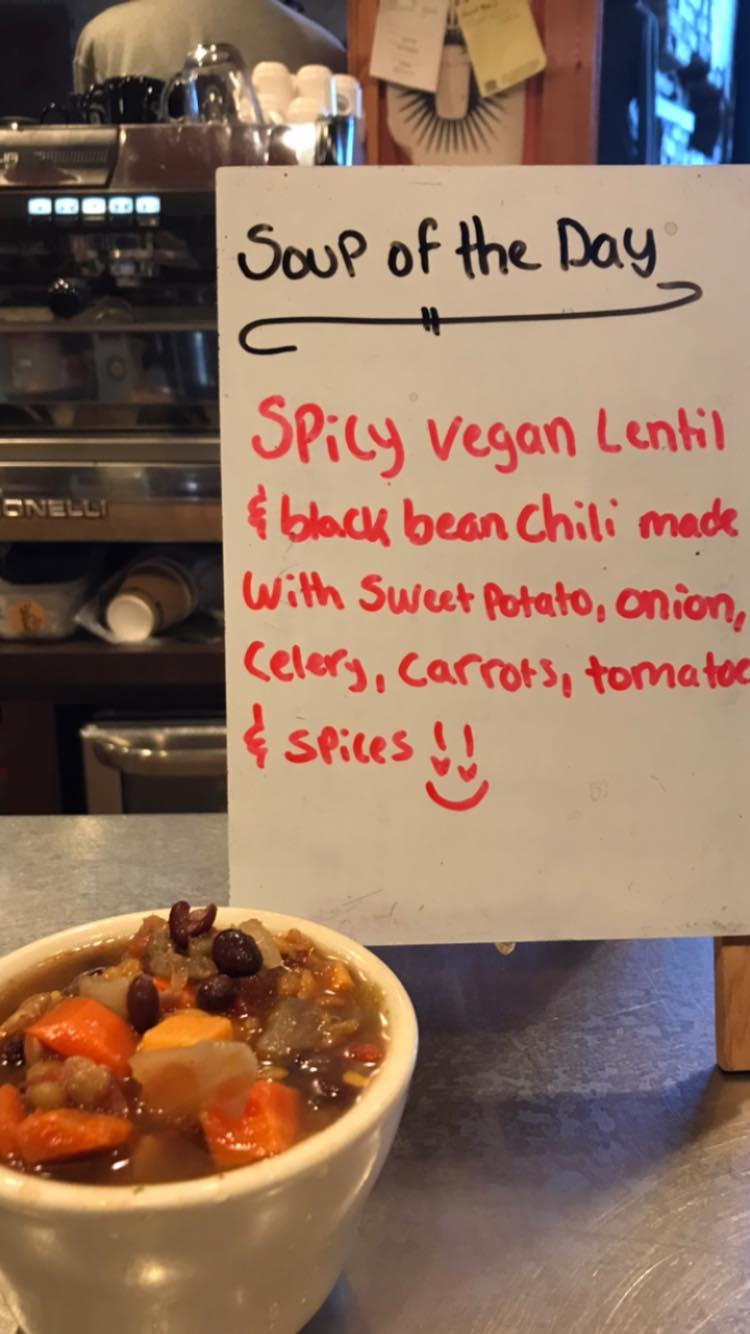 Soup of the Day
Spicy vegan Lentil
& black bean Chili made
with Sweet Potato, onion,
Celery, Carrots, tomatoe
& spices !!
ONELLI